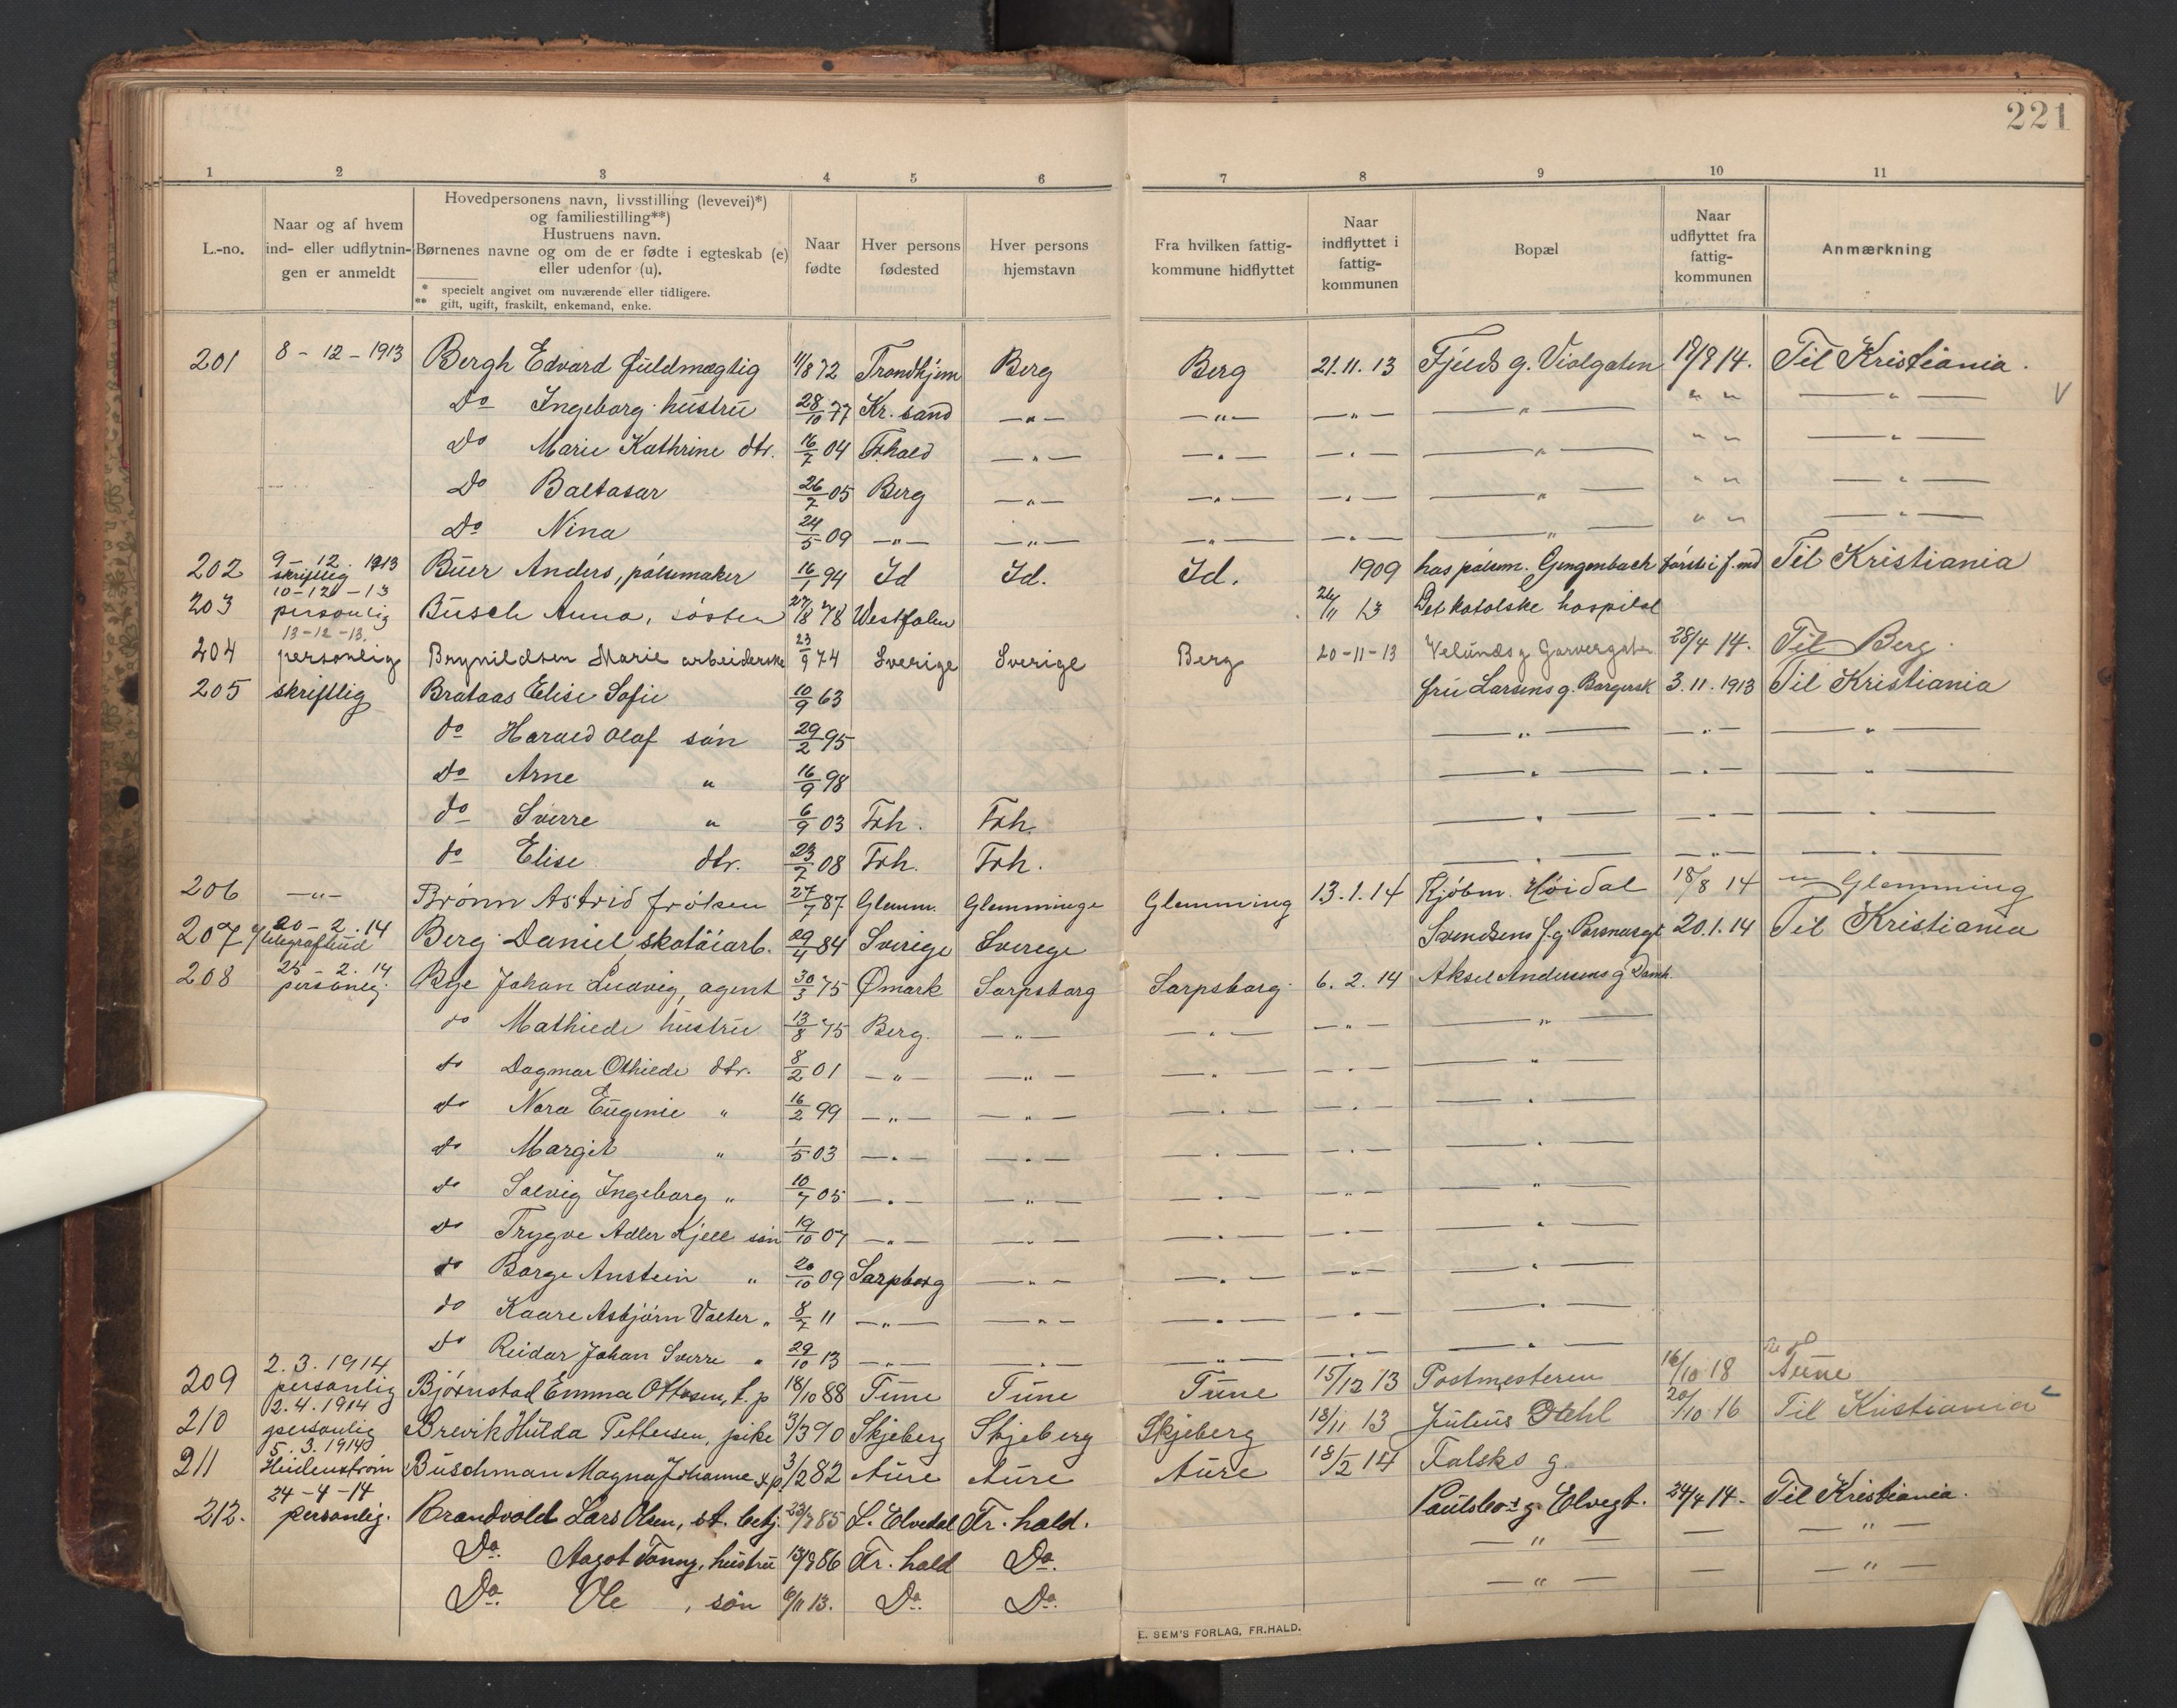 221
1 2 3 4 5 6 7 8 9 10 11
L.-no.
Naar og af hvem ind- eller udflytnin- gen er anmeldt
Hovedpersonens navn, livsstilling (levevei)*) og familiestilling**) Hustruens navn. Børnenes navne og om de er fødte i egteskab (e) eller udenfor (u).
* specielt angivet om nuværende eller tidligere.
** gift, ugift, fraskilt, enkemand, enke.
Naar fødte
Hver persons fødested
Hver persons hjemstavn
Fra hvilken fattig- kommune hidflyttet
Naar indflyttet i fattig- kommunen
Bopæl
Naar udflyttet fra fattig- kommunen
Anmærkning
201 8-12-1913 Bergh Edvard fuldmægtig 11/8 72 Trondhjem Berg Berg 21.11.13 Fjelds g. Violgaten 12/9 14. Til Kristiania.
Do Ingeborg hustru 28/10 77 Kr.sand —"— —"— —"— —"— " " —"— V
Do Marie Kathrine dtr. 16/7 04 Frhald —"— —"— —"— —"— " " —"—
Do Baltasar 26/7 05 Berg —"— —"— —"— —"— " " —"—
Do Nina 24/5 09 —"— —"— —"— —"— —"— " " —"—
202 9-12.1913 skriftlig Buer Anders, pølsemaker 16/1 94 Id Id. Id. 1909 hos pølsm. Gengenbach første i f. md Til Kristiania
203 10-12-13 personlig Busch Anna, søster 27/8 78 Westfalen 26/11 13 Det katolske hospital
204 13-12-13. personlig Brynildsen Marie arbeiderske 23/9 74 Sverige Sverige Berg 20-11-13 Velunds g Garvergaten 28/4 14. Til Berg.
205 skriftlig Brataas Elise Sofie 10/9 63 fru Larsens g. Borgersk 3.11.1913 Til Kristiania
do Harald Olaf søn 29/2 95 —"— —"— —"—
Do Arne " 16/9 98 —"— —"— —"—
do Sverre " 6/9 03 Frh. Frh. —"— —"— —"—
do Elise dtr. 23/7 08 Frh. Frh. —"— —"— —"—
206 —"— Brønn Astrid frøken 27/7 87 Glemm. Glemminge Glemming 13.1.14 Kjøbm. Høidal 18/8 14 " Glemming
207 20-2.14 telegrafbud Berg Daniel skotøiarb. 29/4 84 Sverige Sverege Svendsens f. g 20.1.14 Til Kristiania
208 25-2.14 personlig. Bye Johan Ludvig, agent 30/3 75 Ømark Sarpsborg Sarpsborg 6.2.14 Aksel Andersens g Damh.
do Mathilde hustru 13/8 75 Berg. —"— —"— —"— —"—
do Dagmar Othilde dtr. 8/2 01 —"— —"— —"— —"— —"—
do Nora Eugenie " 16/2 99 —"— —"— —"— —"— —"—
do Margit " 1/5 03 —"— —"— —"— —"— —"—
do Solvig Ingeborg " 10/7 05 —"— —"— —"— —"— —"—
do Trygve Adler Kjell søn 19/10 07 —"— —"— —"— —"— —"—
do Borge Anstein " 20/10 09 Sarpborg —"— —"— —"— —"—
do Kaare Asbjørn Valter " 8/7 11 —"— —"— —"— —"— —"—
do Reidar Johan Sverre " 29/10 13 —"— —"— —"— —"— —"—
209 2.3.1914 personlig Bjørnstad Emma Ottesen, t. p 18/10 88 Tune Tune Tune 15/12 13 Postmesteren 16/10 18 Tune
210 2.4.1914 personlig Brevik Hulda Pettersen, pike 3/3 90 Skjeberg Skjeberg Skjeberg 18/11 13 Julius Dahl 20/10 16 Til Kristiania
211 5.3.1914 Heidenstrøm Buschman Magna Johanne t.p. 3/2 82 Aure Aure Aure 18/2 14 Falsks g.
212. 24-4-14 personlig. Brandvold Lars Olsen, st. betj. 23/7 85 L. Elvedal Fr.hald. Paulsbos g. Elvegt. 24/4 14. Til Kristiania.
Do. Aagot Fanny, hustru 13/9 86 Fr.hald Do. —"— — —"—
Do. Ole, søn 6/11 13. Do. Do. —"— — —"—
E. SEM'S FORLAG, FR.HALD.